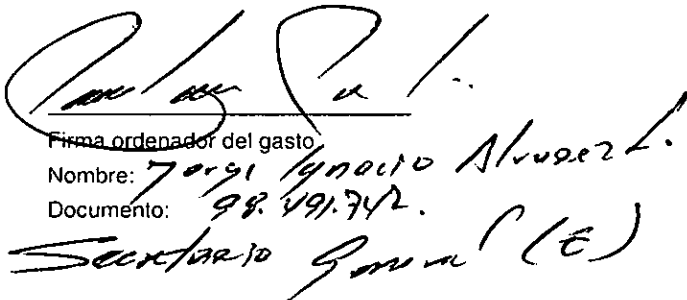 Firma ordenador del gasto
Nombre: Jorge Ignacio Alvarez L.
Documento: 98.491.742.
Secretario General (E)